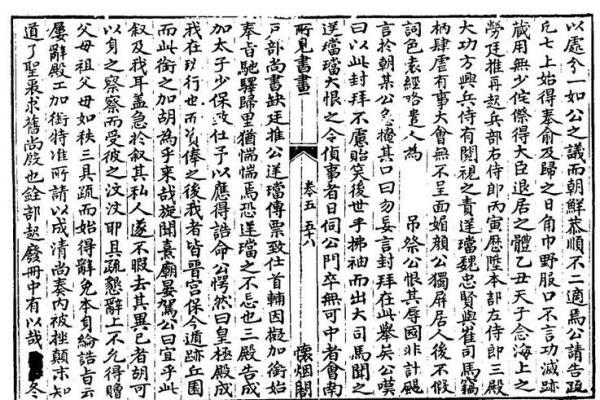 以處分一如公之議而朝鮮恭順不二適焉公請告疏
凡七上始得奉俞及歸之日角巾野服口不言功滅跡
蔵用無少侘傺得大臣退居之體乙丑天子念海上之
勞廷推再起兵部右侍郎丙寅歷陞本部左侍郎三殿
大功方興兵侍有閱視之責逆璫魏忠賢與崔司馬竊
柄肆虐有事大會無不呈面媚顏公獨屏居人後不假
詞色袁經略崇人為 吊祭公恨其辱國非計颺
言於朝某公急掩其口曰勿妄言封拜在此舉矣公嘆
曰以此封拜不慮貽笑後世乎拂袖而出大司馬聞之
逆璫璫大恨之令偵事者日伺公門卒無可中者會南
所見書畫 卷五 五十八 懷烟閣
戶部尚書缺廷推公逆璫傳票致仕首輔因擬加銜始
奉旨馳驛歸里猶惴惴焉恐逆璫之不忘也三殿告成
加太子少保致仕予以應得誥命公愕然曰皇極殿成
我在班行也而貢俸之後我者皆晋宮保今遁跡丘園
而此銜之加胡為乎來哉旋聞熹廟晏駕公曰宜乎此
叙及我耳盖急於叙其私人遂不暇去其異已者胡可
以身之察察而受彼之汶汶耶具疏懇辭上不允得贈
父母祖父母如秩三具疏而始得辭免本身綸誥旨云
屢辭殿工加銜特准所請以成清尚秦內被挫顛末知
道了聖衷求舊尚殷也銓部起廢冊中有以哉 冬